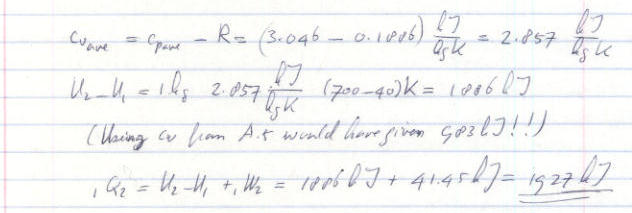 Cv ave = Cp ave − R = (3.046 − 0.1886) kJ/kg K = 2.857 kJ/kg K
U₂ − U₁ = 1 kg 2.857 kJ/kg K (700−40)K = 1886 kJ
(Using cv from A.5 would have given 983 kJ!!)
₁Q₂ = U₂−U₁ + ₁W₂ = 1886 kJ + 41.45 kJ = 1927 kJ